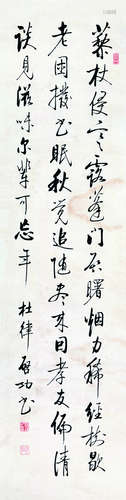 藜杖侵寒露蓬门启曙烟力稀经树歇
老困撥书眠秋觉追随尽来因孝友偏清
谈见滋味尔辈可忘年 杜律 启功书